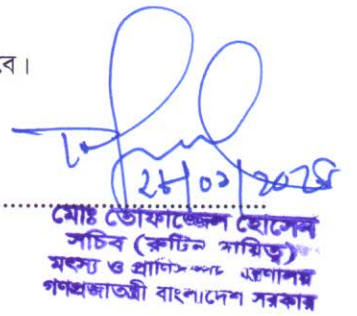 বে।
মোঃ তোফাজ্জেল হোসেন
সচিব (রুটিন দায়িত্ব)
মৎস্য ও প্রাণিসম্পদ মন্ত্রণালয়
গণপ্রজাতন্ত্রী বাংলাদেশ সরকার